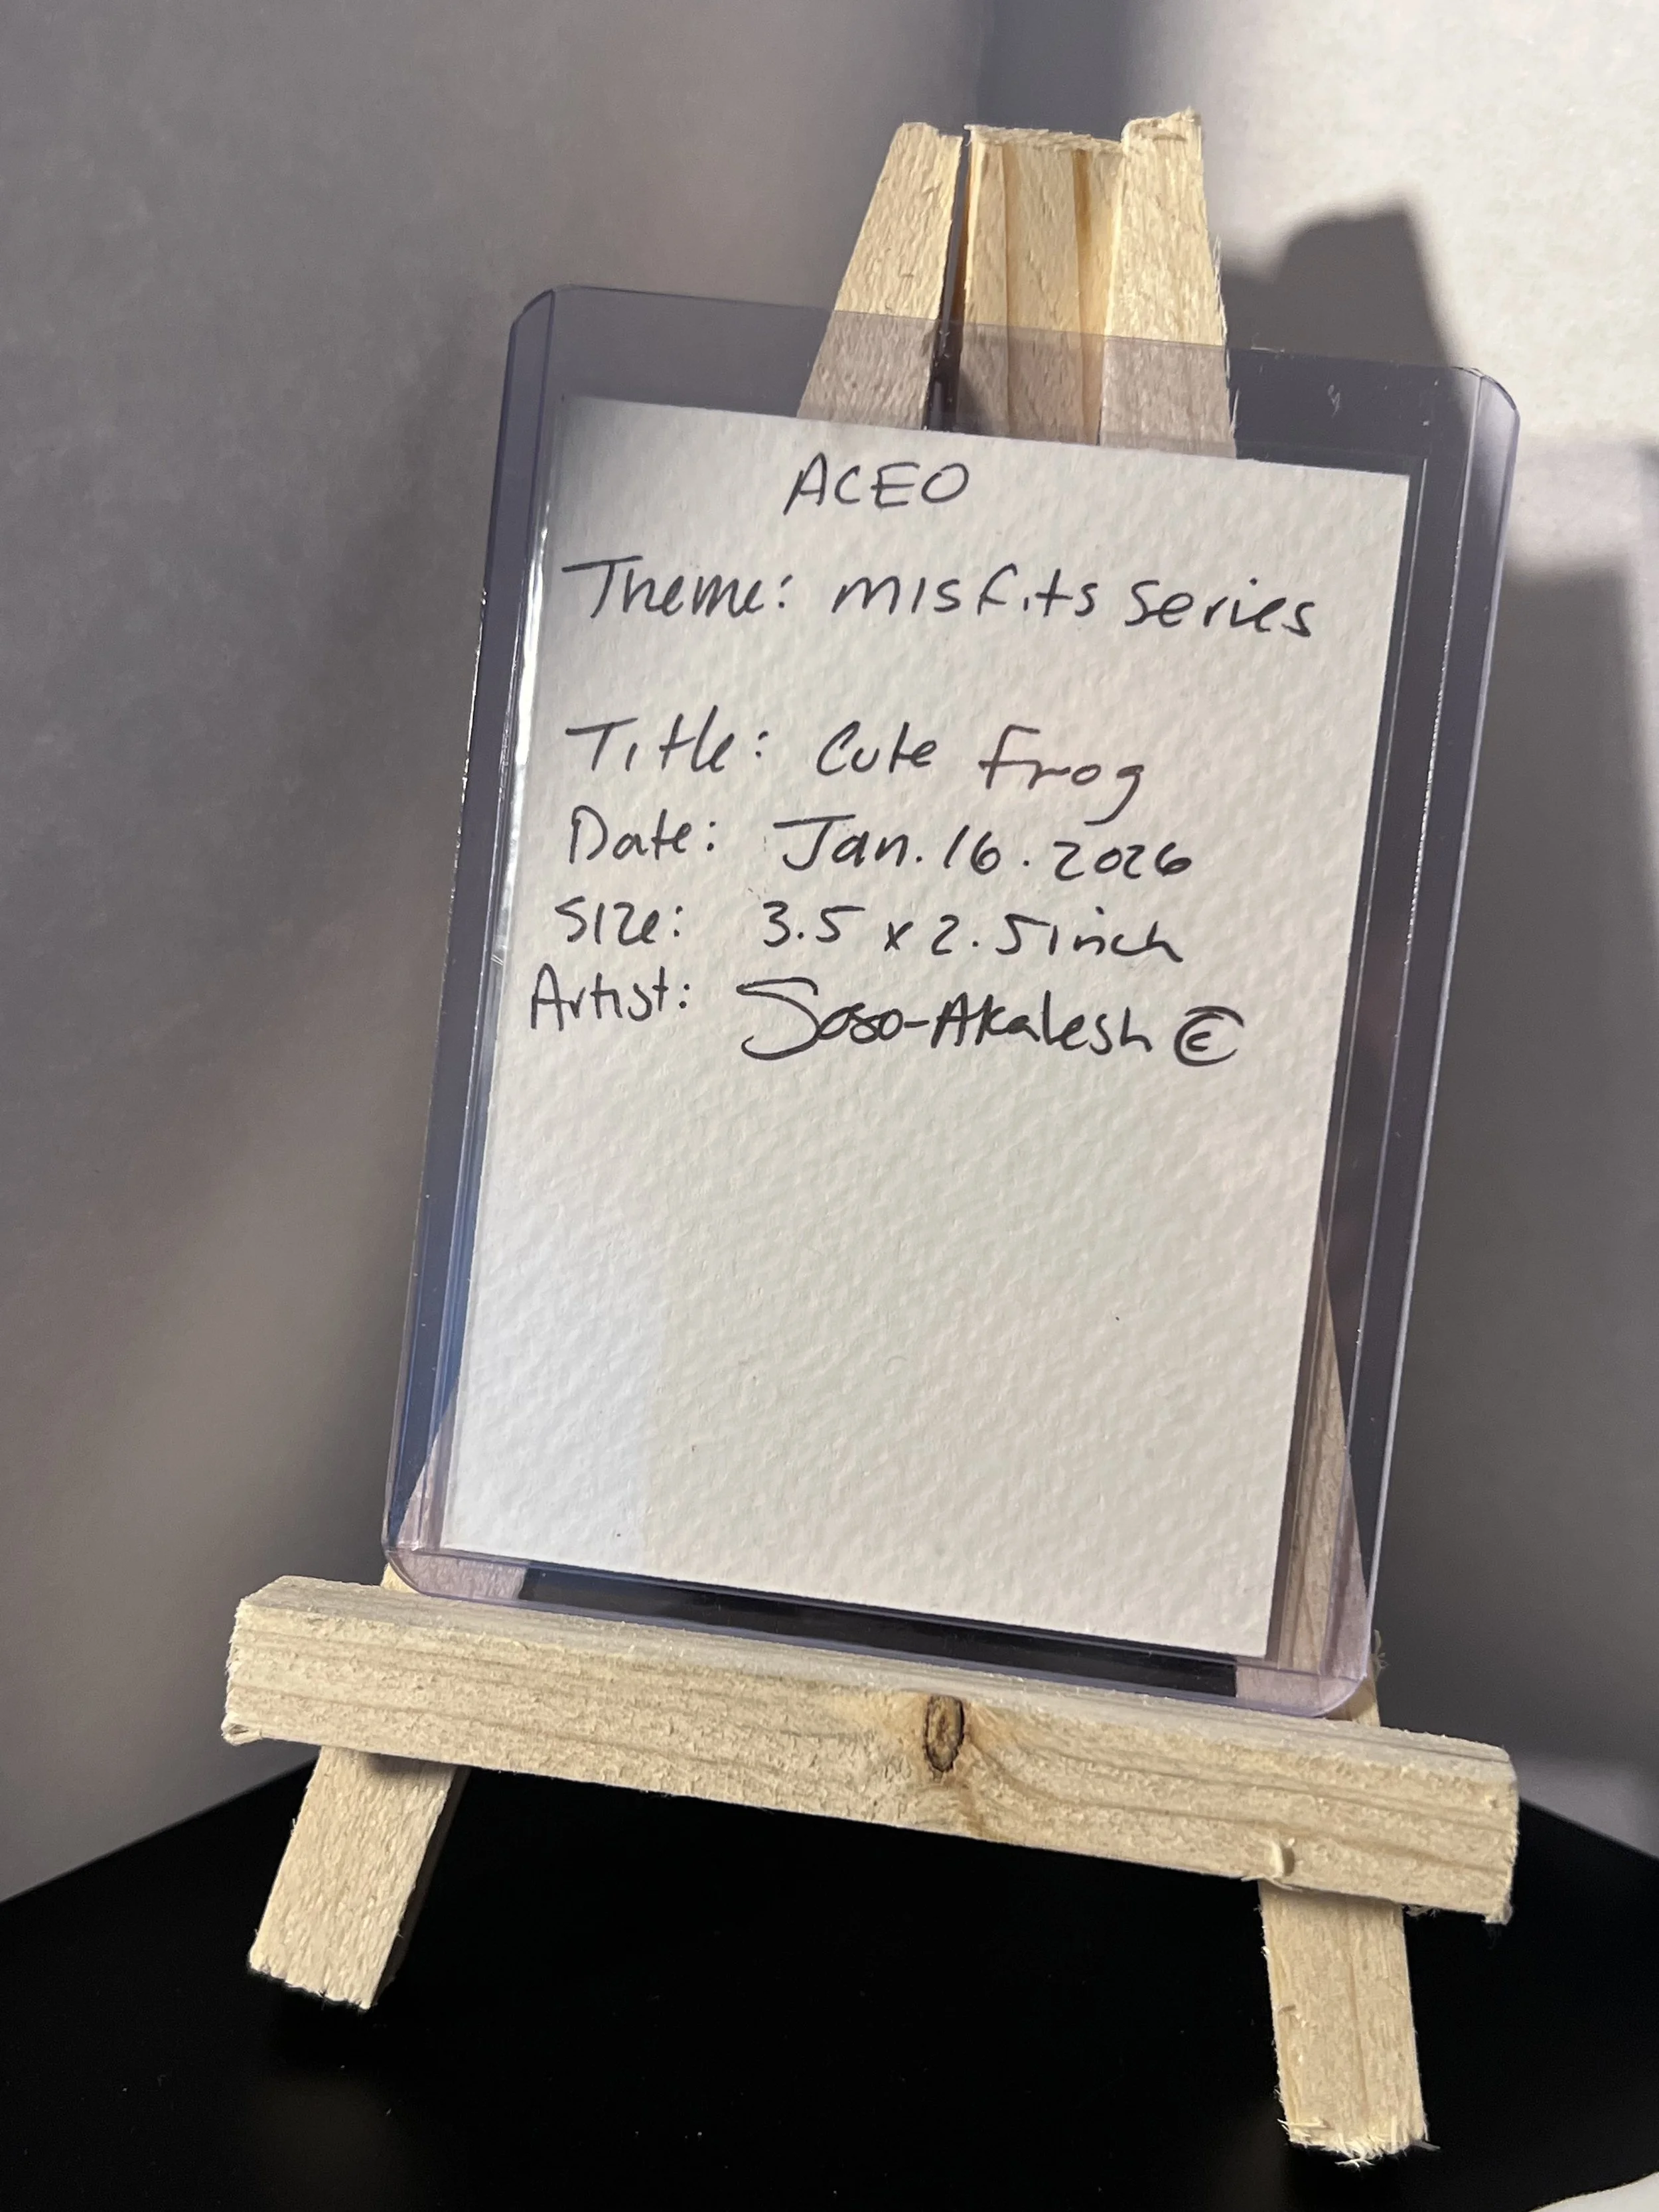 ACEO
Theme: misfits series
Title: Cute frog
Date: Jan. 16. 2026
Size: 3.5 x 2.5 inch
Artist: Soso-Akalesh ©